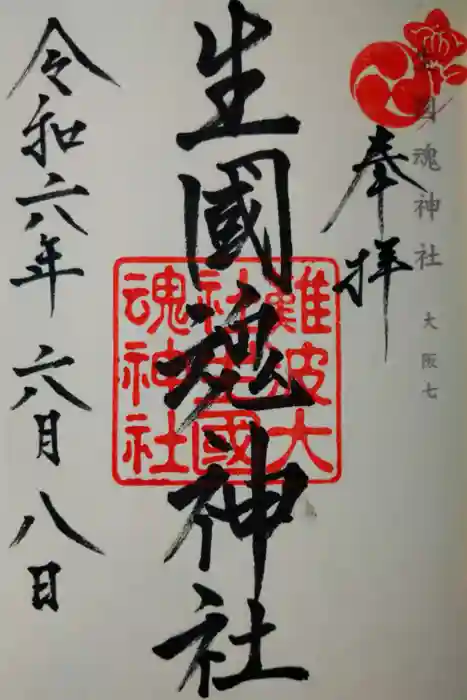 生國魂神社 大阪七
奉拝
生國魂神社
難波大
社生國
魂神社
令和六年六月八日